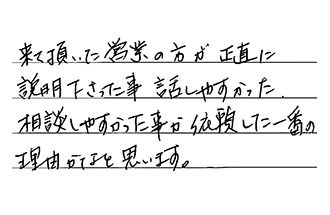 来て頂いた営業の方が正直に
説明下さった事 話しやすかった、
相談しやすかった事が依頼した一番の
理由かなと思います。